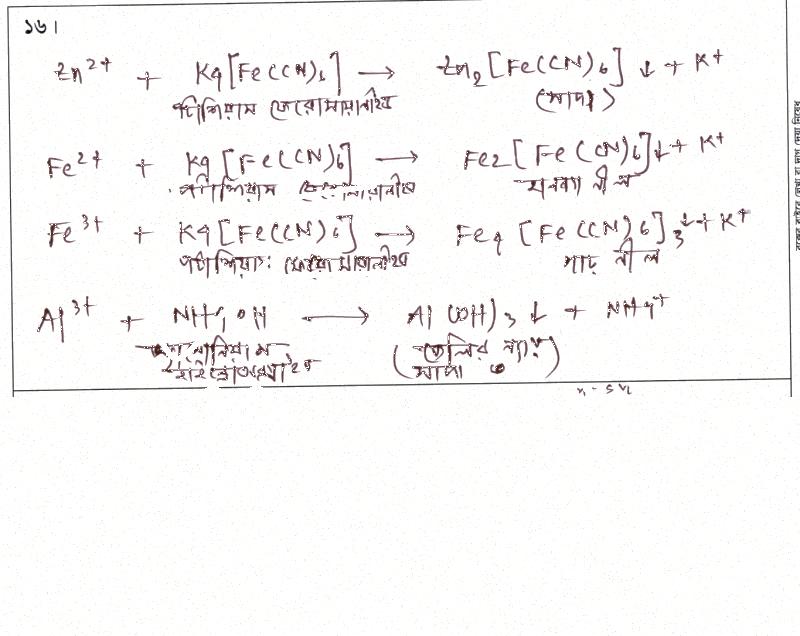 ১৬।
Zn²⁺ + K₄[Fe(CN)₆] → Zn₂[Fe(CN)₆]↓ + K⁺
পটাশিয়াম ফেরোসায়ানাইড (সাদা)
Fe²⁺ + K₄[Fe(CN)₆] → Fe₂[Fe(CN)₆]↓ + K⁺
পটাশিয়াম নীল
Fe³⁺ + K₄[Fe(CN)₆] → Fe₄[Fe(CN)₆]₃↓ + K⁺
পটাশিয়াম ফেরোসায়ানাইড গাঢ় নীল
Al³⁺ + NH₄OH → Al(OH)₃↓ + NH₄⁺
(জেলির ন্যায়
সাদা)